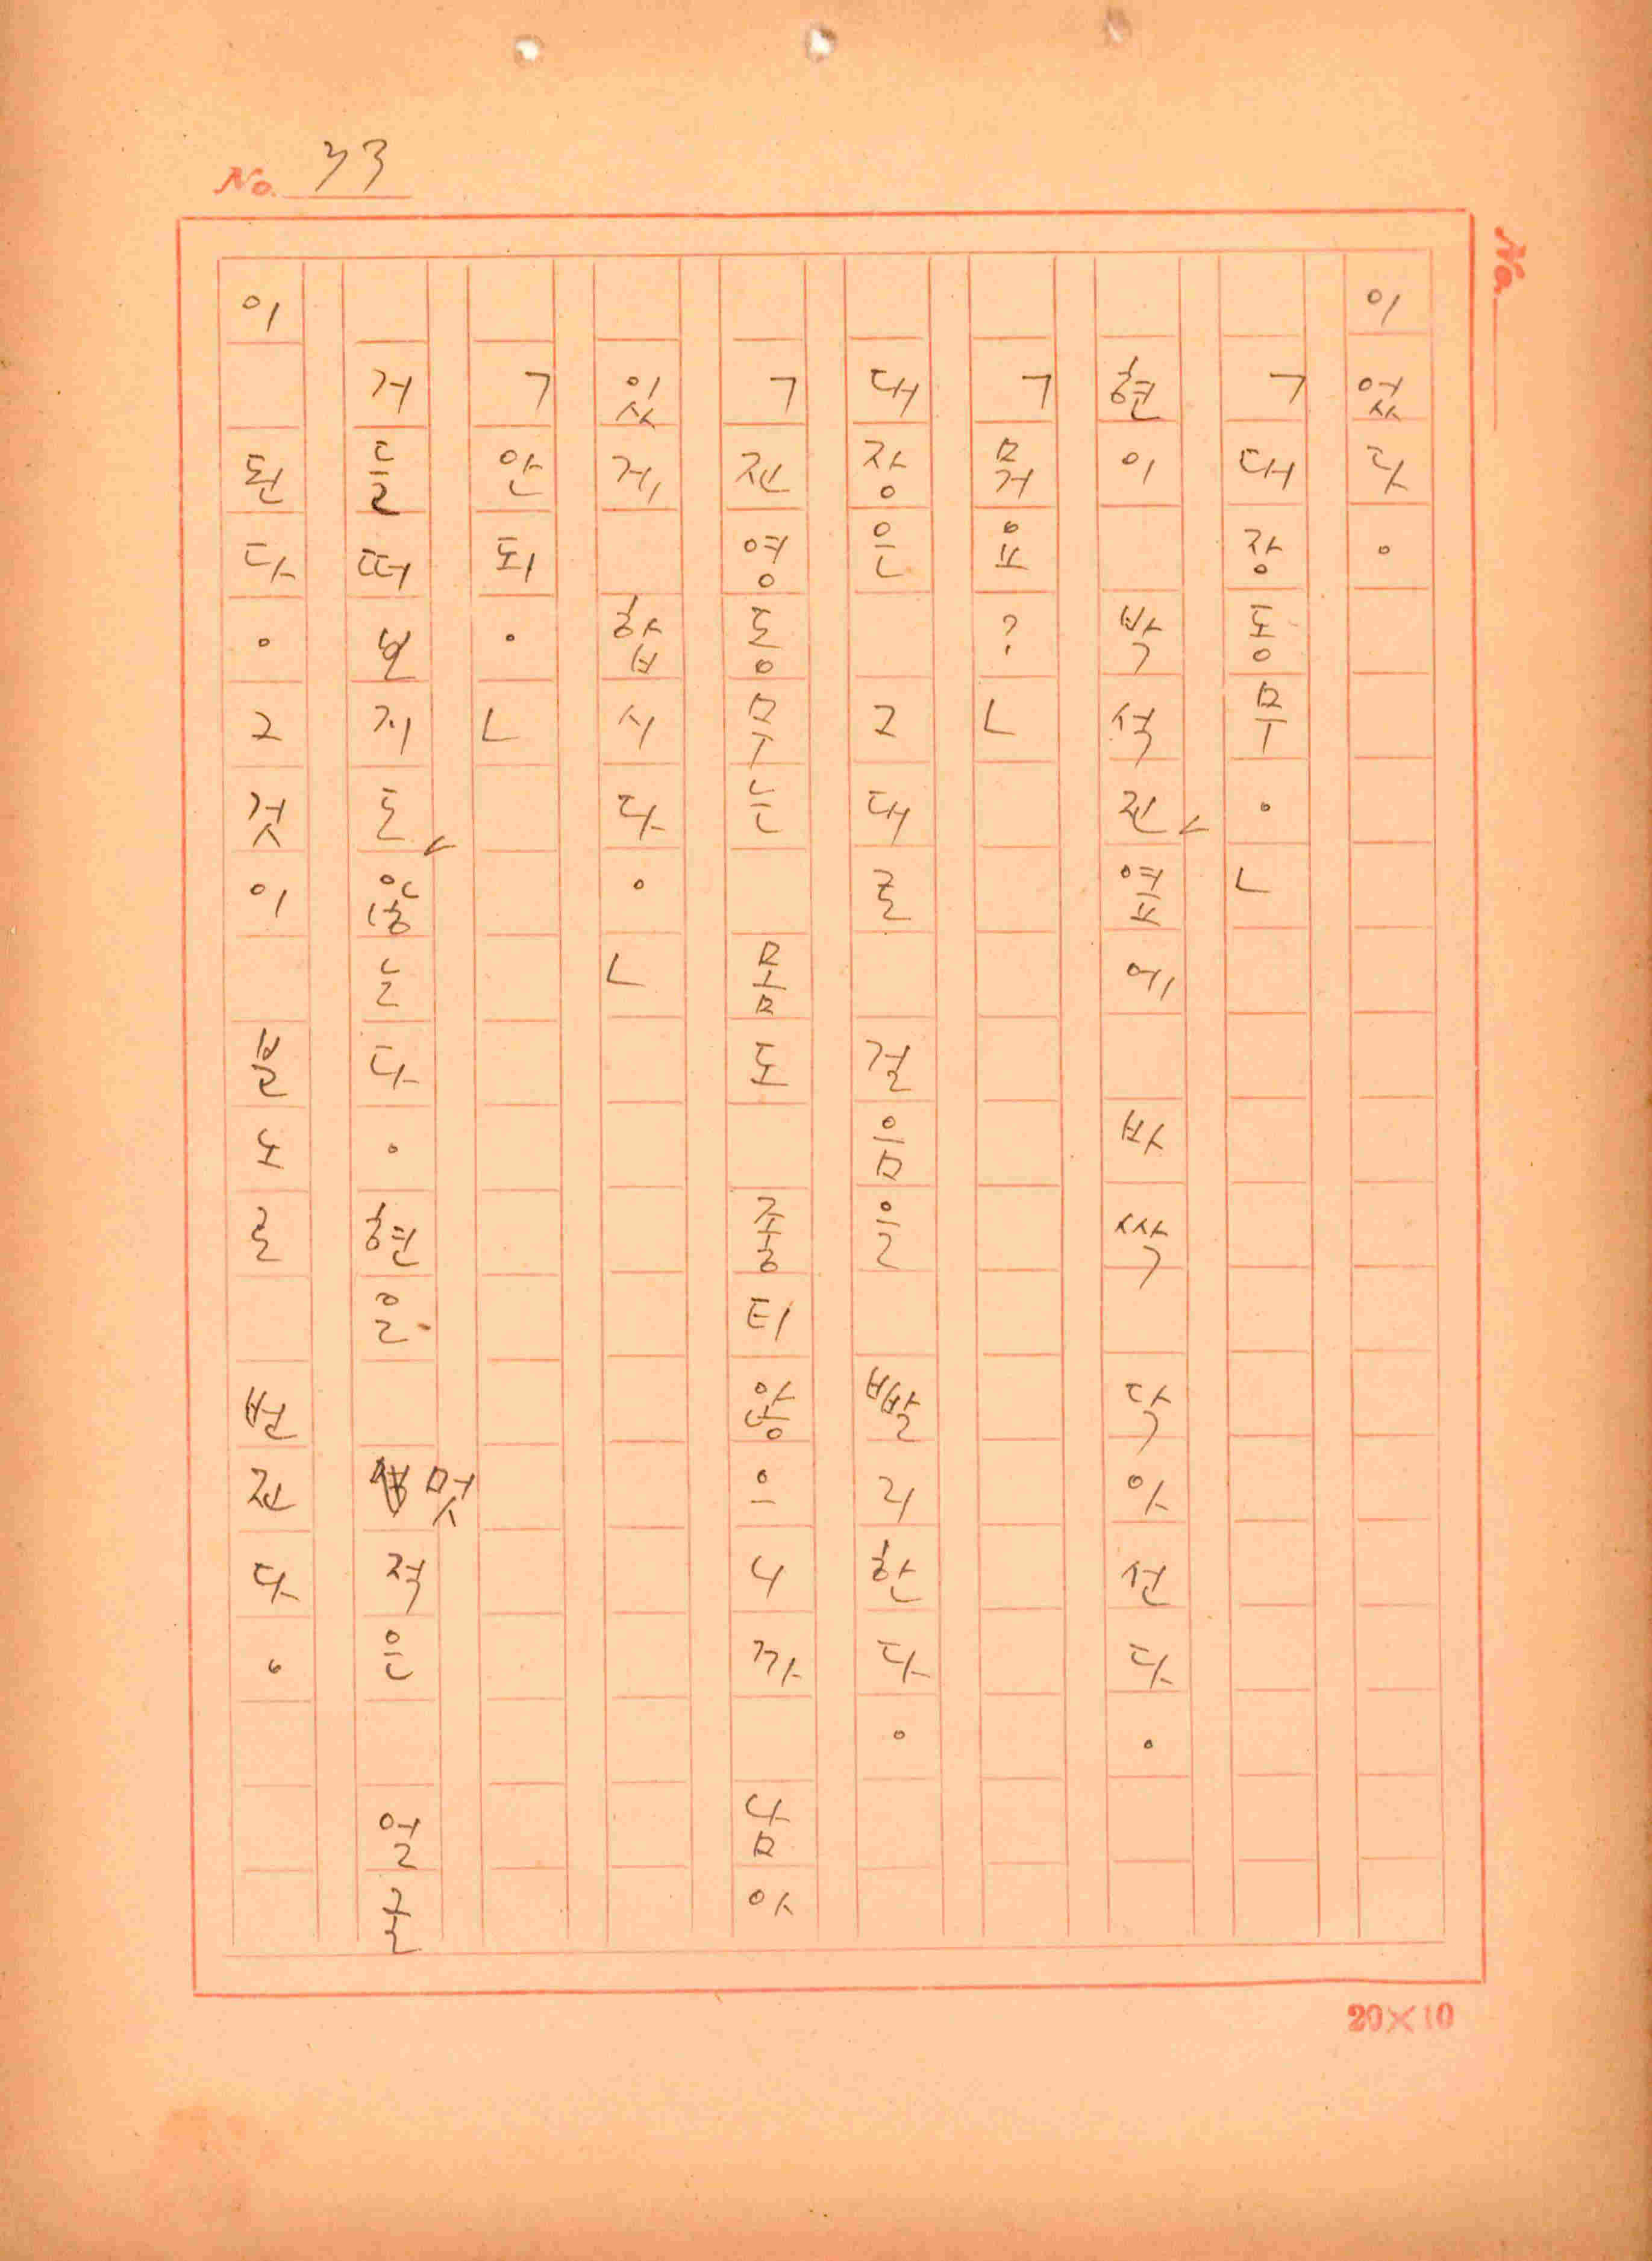 No.
No.
이었다。
「대장동무。」
현이 박석진 옆에 바싹 닥아선다。
「뭐요?」
대장은 그대로 걸음을 빨리한다。
「전영동무는 몸도 좋티않으니까 남아
있게 합시다。」
「안되。」
거들떠보지도 않는다。현은 멋적은 얼굴
이 된다。그것이 분노로 번진다。
20×10